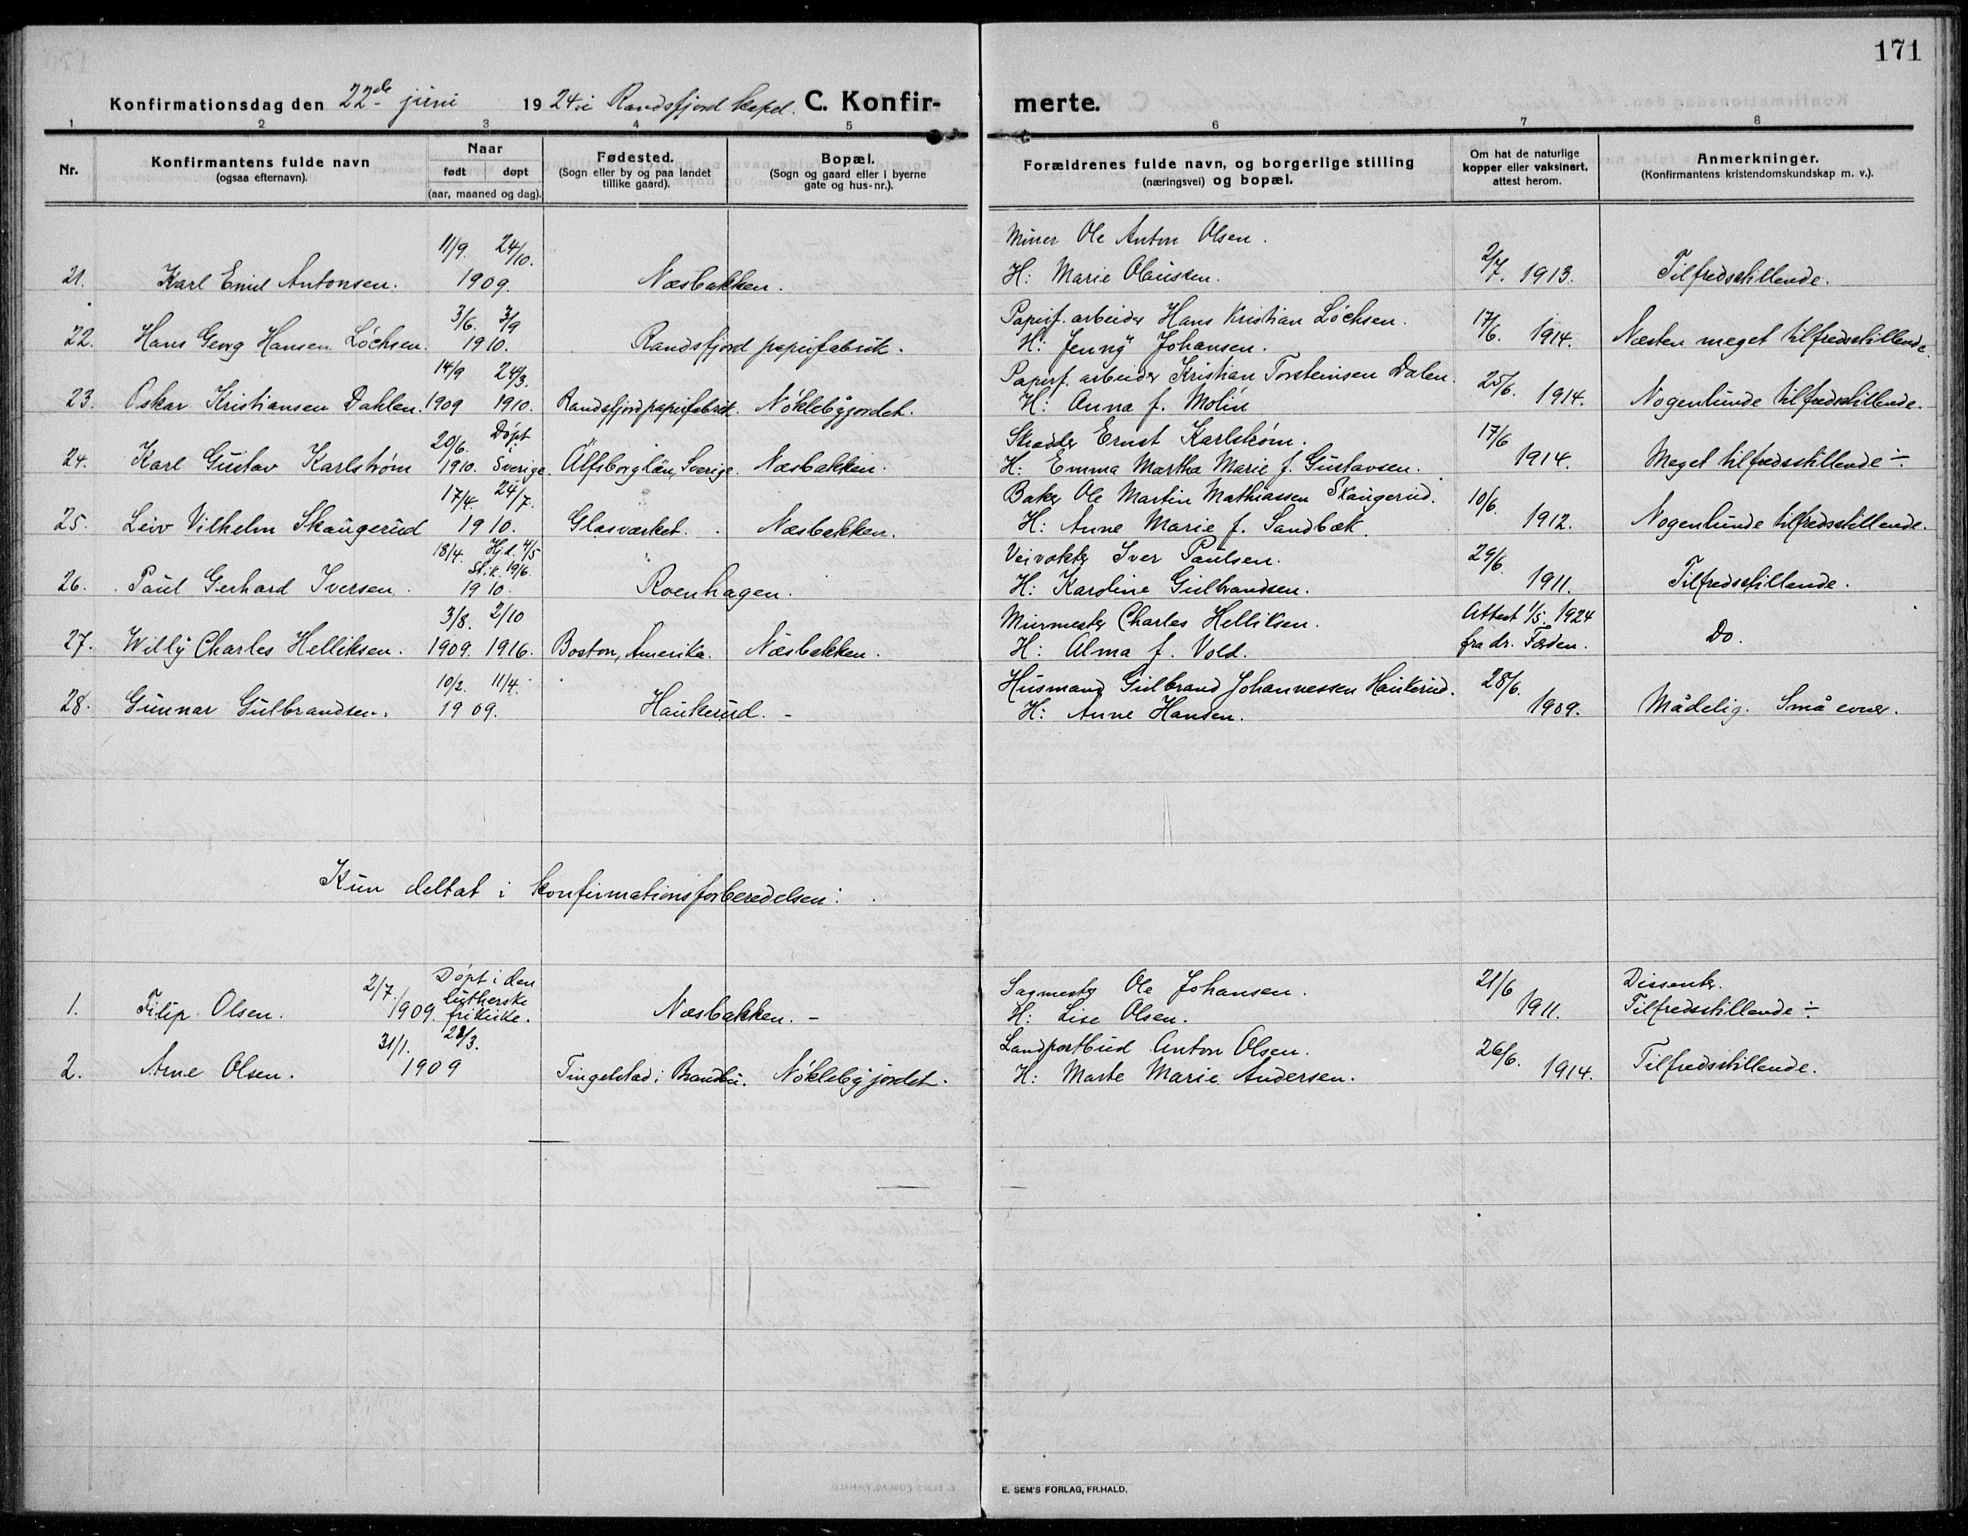 171
Konfirmationsdag den 22de juni 1924 i Randsfjord kapel. C. Konfirmerte.
1 2 3 4 5 6 7 8
Nr.
Konfirmantens fulde navn
(ogsaa efternavn).
Naar
født døpt
(aar, maaned og dag).
Fødested.
(Sogn eller by og paa landet
tillike gaard).
Bopæl.
(Sogn og gaard eller i byerne
gate og hus-nr.).
Forældrenes fulde navn, og borgerlige stilling
(næringsvei) og bopæl.
Om hat de naturlige
kopper eller vaksinert,
attest herom.
Anmerkninger.
(Konfirmantens kristendomskundskap m. v.).
11/9. 24/10. Murer Ole Anton Olsen. 2/7.
21. Karl Emil Antonsen. 1909. Næsbakken. H: Marie Olaussen. 1913. Tilfredsstillende.
3/6. 3/9 Papirf. arbeider Hans Kristian Löchsen. 17/6.
22. Hans Georg Hansen Löchsen. 1910. Randsfjord papirfabrik. H: Jenny Johansen. 1914. Næsten meget tilfredsstillende.
14/9 24/3. Papirf. arbeider Kristian Torsteinsen Dalen. 25/6.
23. Oskar Kristiansen Dahlen. 1909 1910. Randsfjord papirfabrik. Nöklebyjordet. H: Anna f. Molin 1914. Nogenlunde tilfredsstillende.
20/6. Döpt i Skrædder Ernst Karlström. 17/6
24. Karl Gustav Karlström 1910. Sverige. Älfsborg län, Sverige. Næsbakken. H: Emma Martha Marie f. Gustavsen. 1914. Meget tilfredsstillende ÷.
17/4. 24/7. Baker Ole Martin Mathiassen Skaugerud. 10/6.
25. Leiv Vilhelm Skaugerud 1910. Glasværket. Næsbakken. H: Anne Marie f. Sandbæk. 1912. Nogenlunde tilfredsstillende.
18/4. Hj.d. 4/5 Veivokter Iver Paulsen. 29/6.
St. i k. 19/6.
26. Paul Gerhard Iversen. 1910. Roenhagen. H: Karoline Gulbrandsen. 1911. Tilfredsstillende.
3/8. 2/10 Murmester Charles Helliksen. Attest 1/5. 1924
27. Willy Charles Helliksen. 1909. 1916. Boston, Amerika. Næsbakken. H: Alma f. Vold. fra dr. Færden. Do.
10/2. 11/4. Husmand Gulbrand Johannessen Haukerud. 28/6.
28. Gunnar Gulbrandsen. 1909. Haukerud. - H: Anne Hansen. 1909. Mådelig. Små evner.
Kun deltat i konfirmationsforberedelsen:
2/7. Döpt i den Sagmester Ole Johansen. 21/6 Dissenter.
1. Filip Olsen. 1909. lutherske frikirke. Næsbakken. - H: Lise Olsen. 1911. Tilfredsstillende ÷
31/1. 28/3. Landpostbud Anton Olsen. 26/6.
2. Arne Olsen. 1909 Tingelstad i Brandbu. Nöklebyjordet. H: Marte Marie Andersen. 1914. Tilfredsstillende.
E. SEM'S FORLAG, FR.HALD.